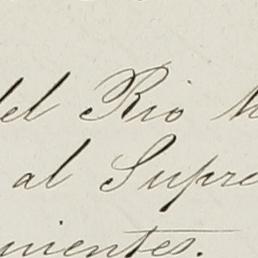 del Rio M
al Supre
nientes.